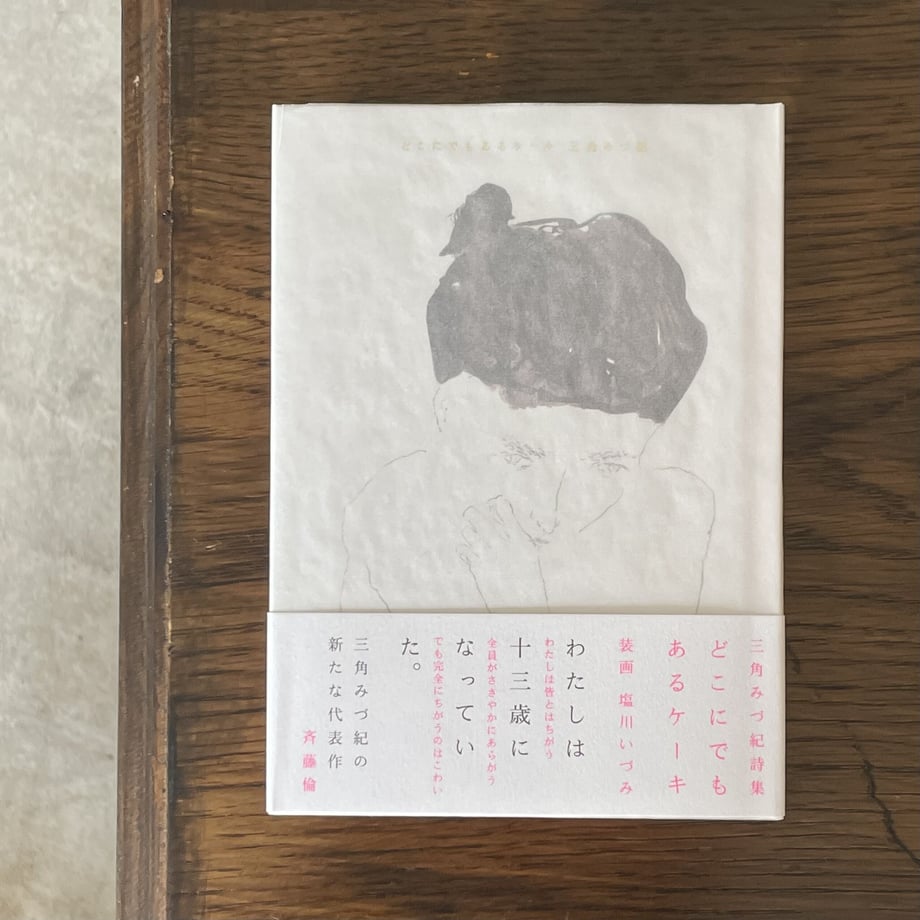 どこにでもあるケーキ 三角みづ紀
三角みづ紀詩集
どこにでも
あるケーキ
装画 塩川いづみ
わたしは
わたしは皆とはちがう
十三歳に
全員がささやかにあらがう
なってい
でも完全にちがうのはこわい
た。
三角みづ紀の
新たな代表作
斉藤倫